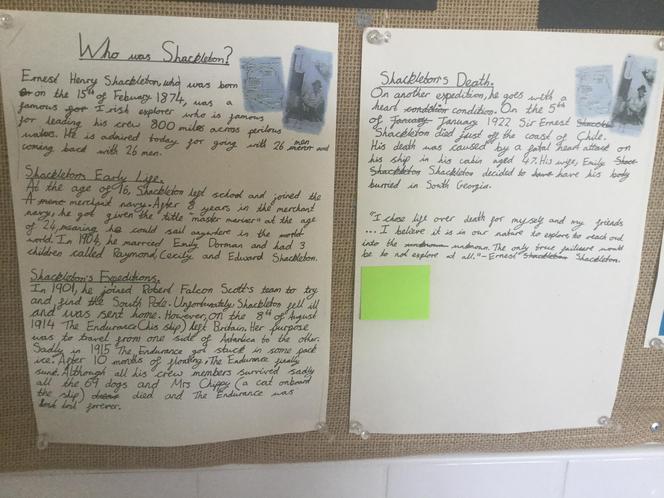 Who was Shackleton?
Ernest Henry Shackleton, who was born
on the 15th of Febuary 1874, was a
famous Irish explorer who is famous
for leading his crew 800 miles across perilous
waters. He is admired today for going with 26 men and
coming back with 26 men.
Shackletons Early Life.
At the age of 16, Shackleton left school and joined the
merchant navy. After 8 years in the merchant
navy, he got given the title "master mariner" at the age
of 24, meaning he could sail anywhere in the
world. In 1904, he married Emily Dorman and had 3
children called Raymond, Cecily and Edward Shackleton.
Shackleton's Expeditions.
In 1901, he joined Robert Falcon Scott's team to try
and find the South Pole. Unfortunatly Shackleton fell ill
and was sent home. However, on the 8th of August
1914 The Endurance (his ship) left Britain. Her purpose
was to travel from one side of Antartica to the other.
Sadly in 1915 The Endurance got stuck in some pack
ice. After 10 months of floating, The Endurance finally
sunk. Although all his crew members survived sadly
all the 69 dogs and Mrs Chippy (a cat onboard
the ship) died and The Endurance was
lost forever.
Shackleton's Death.
On another expedition, he goes with a
heart condition. On the 5th
of January 1922 Sir Ernest
Shackleton died just off the coast of Chile.
His death was caused by a fatal heart attack on
his ship in his cabin aged 47. His wife, Emily
Shackleton decided to have his body
buried in South Georgia.
"I chose life over death for myself and my friends
... I believe it is in our nature to explore to reach out
into the unknown. The only true failure would
be to not explore at all." - Ernest Shackleton.